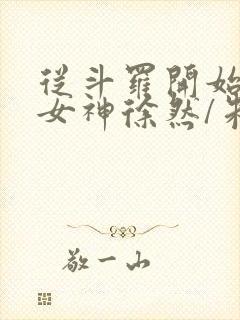 從斗羅開始
女神徐然/朱
敬一山